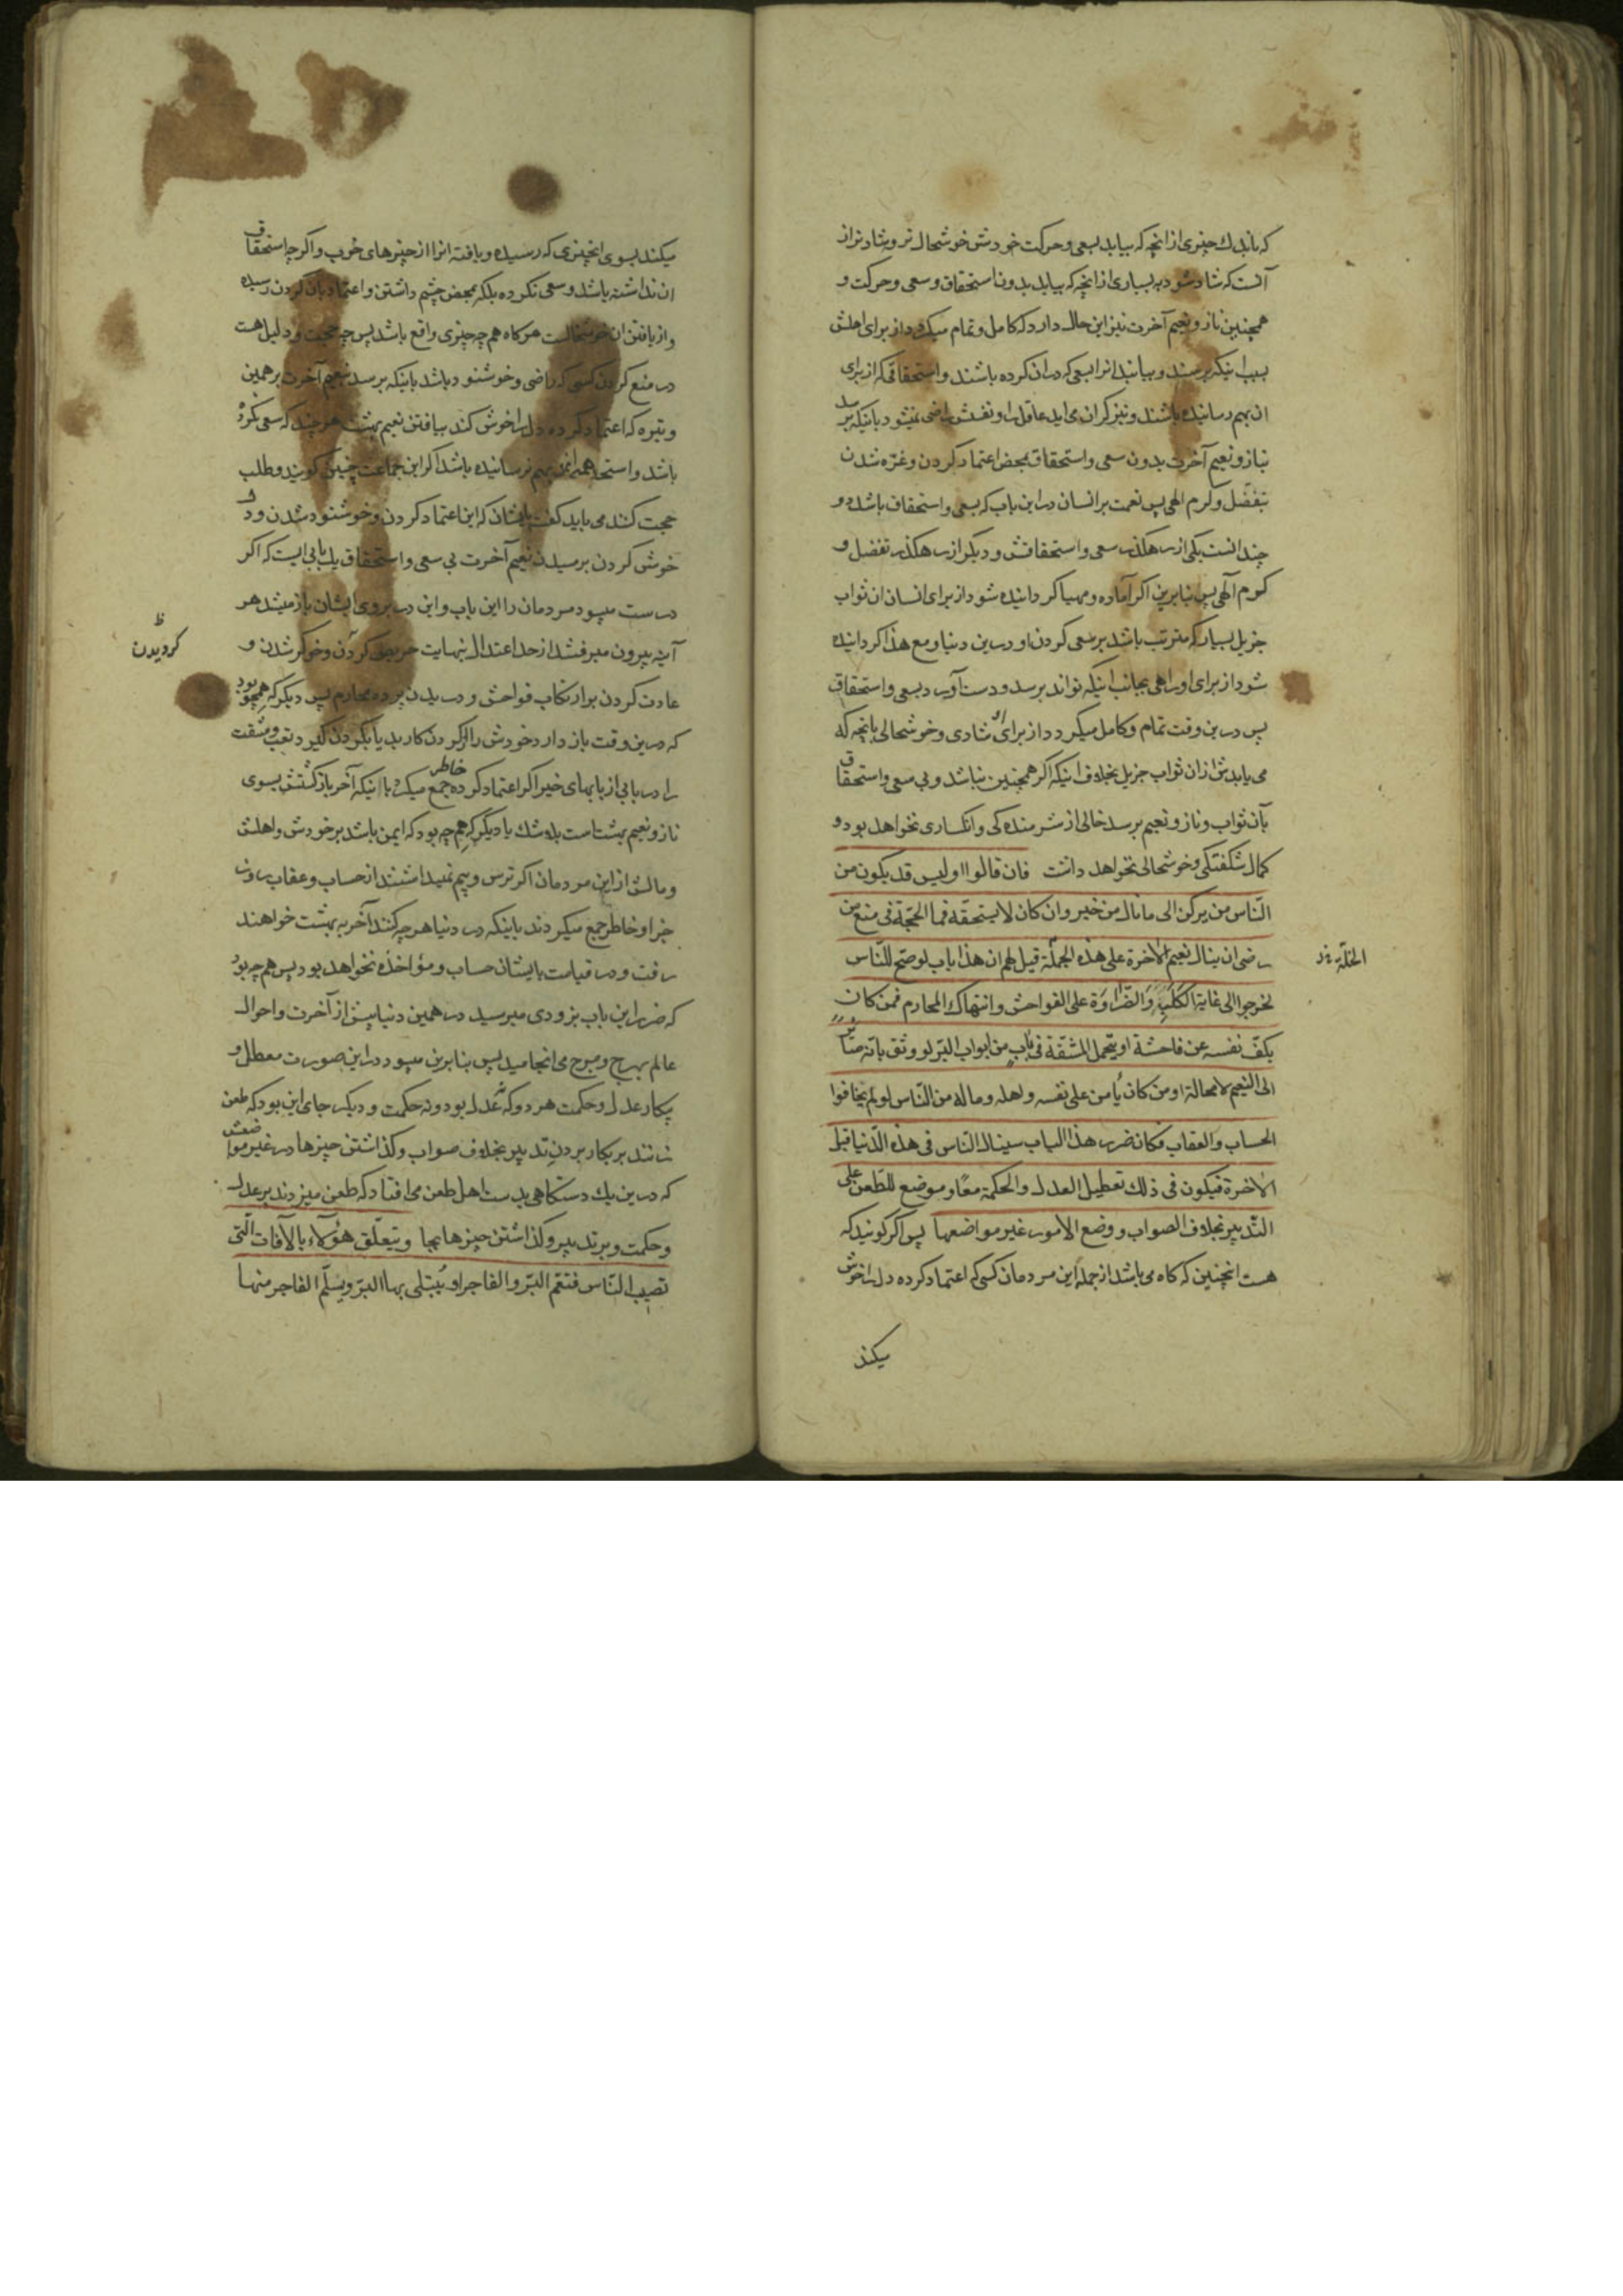 که باندك چیزی از انچه که بیابد بسعی و حرکت خودش خوشحال تر و شادتر از
آنست که شاد شود به بسیاری از انچه که بیابد بدون استحقاق و سعی و حرکت و
همچنین ناز و نعیم آخرت نیز این حال دارد که کامل و تمام میکردد از برای اهلش
بسبب اینکه برسند و بیابند انرا بسعی که در ان کرده باشند و استحقاقی که از برای
ان بهم رسانیده باشند و نیز کران می اید عاقل را و نفسش راضی نمیشود باینکه برسد
بناز و نعیم آخرت بدون سعی و استحقاق بمحض اعتماد کردن و غره شدن
بتفضّل و کرم الهی پس نعمت بر انسان در این باب که بسعی و استحقاق باشد دو
چندانست یکی از رهکذر سعی و استحقاقش و دیکر از رهکذر تفضل و
کرم آلهی پس بنابرین اکر آماده و مهیا کردانیده شود از برای انسان ان ثواب
جزیل بسیار که مترتب باشد بر سعی کردن او در این دنیا و مع هذا کردانیده
شود از برای او راهی بجانب اینکه تواند برسد و دست آورد بسعی و استحقاق
پس درین وقت تمام و کامل میکردد از برای او شادی و خوشحالی بانچه که
می یابدش از ان ثواب جزیل بخلاف اینکه اکر همچنین نباشد و بی سعی و استحقاق
بآن ثواب و ناز و نعیم برسد خالی از شرمنده کی و انکساری نخواهد بود و
کمال شکفتکی و خوشحالی نخواهد داشت فان قالوا اولیس قد یکون من
النّاس من یرکن الی ما نال من خیر و ان کان لا یستحقّه فما الحجّة فی منع من
رضی ان ینال نعیم الاخرة علی هذه الجملة قیل لهم ان هذا باب لو صحّ للنّاس
الخلّة
لخرجوا الی غایة الکَلَبِ وَالضَّراوَة علی الفواحش و انتهاك المحارم فمن کان
یکفّ نفسه عن فاحشة او یتحمل المشقّة فی باب من ابواب البّر لو وثق بانّه صائر
الی النعیم لا محالة او من کان یأمن علی نفسه و اهله و ماله من النّاس لو لم یخافوا
الحساب و العقاب فکان ضرر هذا الباب سینال النّاس فی هذه الدّنیا قبل
الاخرة فیکون فی ذلك تعطیل العدل و الحکمة معًا و موضع للطّعن علی
التّدبیر بخلاف الصواب و وضع الامور غیر مواضعها پس اکر کویند که
هست انچنین که کاه می باشد از جمله این مردمان کسی که اعتماد کرده دل را خوش
میکند
میکند بسوی انچیزی که رسیده و یافته انرا از چیزهای خوب و اکر چه استحقاق
ان نداشته باشد و سعی نکرده بلکه بمحض چشم داشتن و اعتماد بآن کردن رسیده
و از یافتن ان خوشحالست هر کاه هم چه چیزی واقع باشد پس چه حجت و دلیل هست
در منع کردن کسی که راضی و خوشنود باشد باینکه برسد بنعیم آخرت بر همین
وتیره که اعتماد کرده دل را خوش کند بیافتن نعیم بهشت هر چند که سعی نکرده
باشد و استحقاق بهم نرسانیده باشد اکر این جماعت چنین کویند و طلب
حجت کنند می باید کفت بایشان که این اعتماد کردن و خوشنود شدن و دل
خوش کردن برسیدن نعیم آخرت بی سعی و استحقاق یك بابی ایست که اکر
درست میبود مردمان را این باب و این در بروی ایشان باز میشد هر
آینه بیرون میرفتند از حد اعتدال بنهایت حریص کردن و خوکر شدن و
کردیدن
عادت کردن بر ارتکاب فواحش و دریدن پرده محارم پس دیکر که همچو بود
که درین وقت باز دارد خودش را از کردن کار بد یا بکردن کیرد تعب و مشقت
را در بابی از بابهای خیر اکر اعتماد کرده خاطر جمع میکرد باینکه آخر بازکشتش بسوی
ناز و نعیم بهشتست بلا شك یا دیکر که هم چه بود که ایمن باشد بر خودش و اهلش
و مالش از این مردمان اکر ترس و بیم نمیداشتند از حساب و عقاب روز
جزا و خاطر جمع میکردند باینکه در دنیا هر چه کنند آخر به بهشت خواهند
رفت و در قیامت بایشان حساب و مؤاخذه نخواهد بود پس هم چه بود
که ضرر این باب بزودی میرسید در همین دنیا پیش از آخرت و احوال
عالم بهرج و مرج می انجامید پس بنابرین میبود در این صورت معطل و
بیکار عدل و حکمت هر دو که نه عدل بود و نه حکمت و دیکر جای این بود که طعن
زنند بر بکار بردن تدبیر بخلاف صواب و کذاشتن چیزها در غیر مواضعش
که درین یك دستکاهی بدست اهل طعن می افتاد که طعن میزدند بر عدل
و حکمت و بر تدبیر و کذاشتن چیزها بجا و یتعلّق هؤلاء بالآفات الّتی
تصیب النّاس فتعّم البّر و الفاجر او یُبتلی بها البّر و یسلّم الفاجر منها